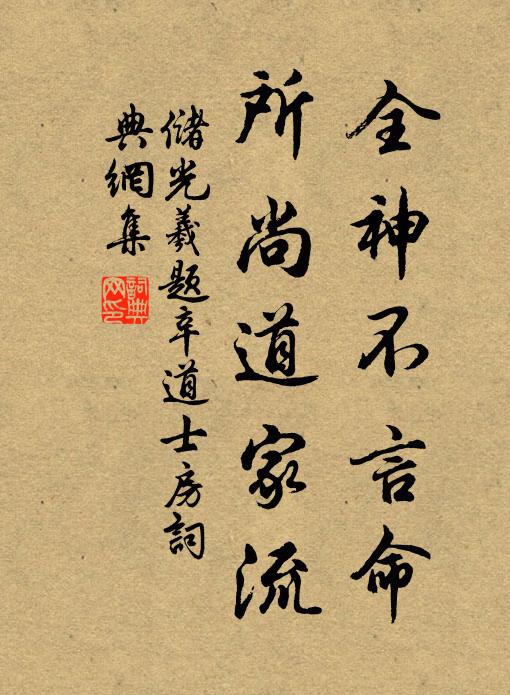 全神不言命
所尚道家流
儲光羲題辛道士房詞
典網集
詞典網印